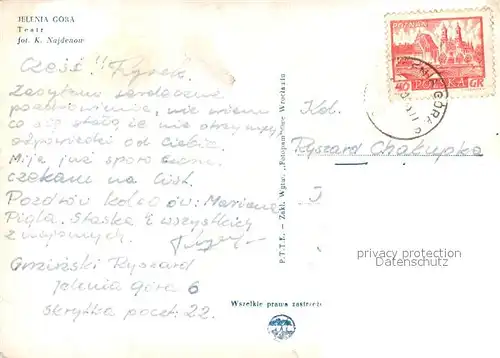 JELENIA GÓRA
Teatr
fot. K. Najdenow
Cześć!! Rysiek.
Zasyłam serdeczne
pozdrowienia, nie wiem
co się stało, że nie otrzymuję
odpowiedzi od Ciebie.
Mija już sporo czasu.
czekam na list.
Pozdrów kolegów: Mariana
Pigla, Staśka i wszystkich
znajomych.
Ryszard
Jelenia Góra 6
skrytka poczt. 22.
P.T.T.K. — Zakł. Wytw. „Fotopam" Wrocław
Wszelkie prawa zastrzeż
POZNAŃ
40 POLSKA GR
Kol.
Ryszard Chałupka
privacy protection
Datenschutz